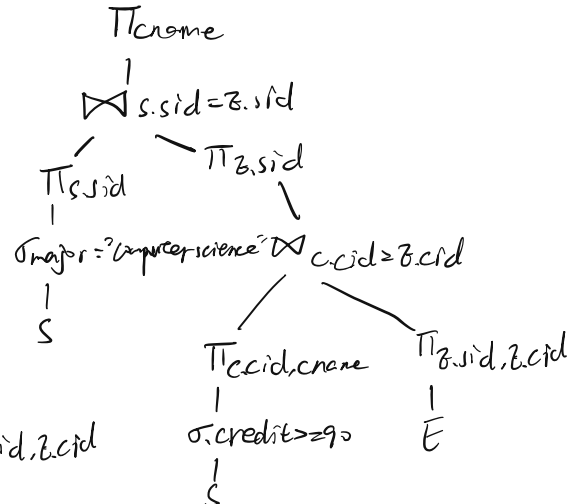 Πcname
⋈ s.sid=z.sid
Πs.sid Πz.sid
σmajor="computerscience" ⋈ c.cid=z.cid
S
Πc.cid,cname Πz.sid,z.cid
id,z.cid σ.credit>=90 E
S